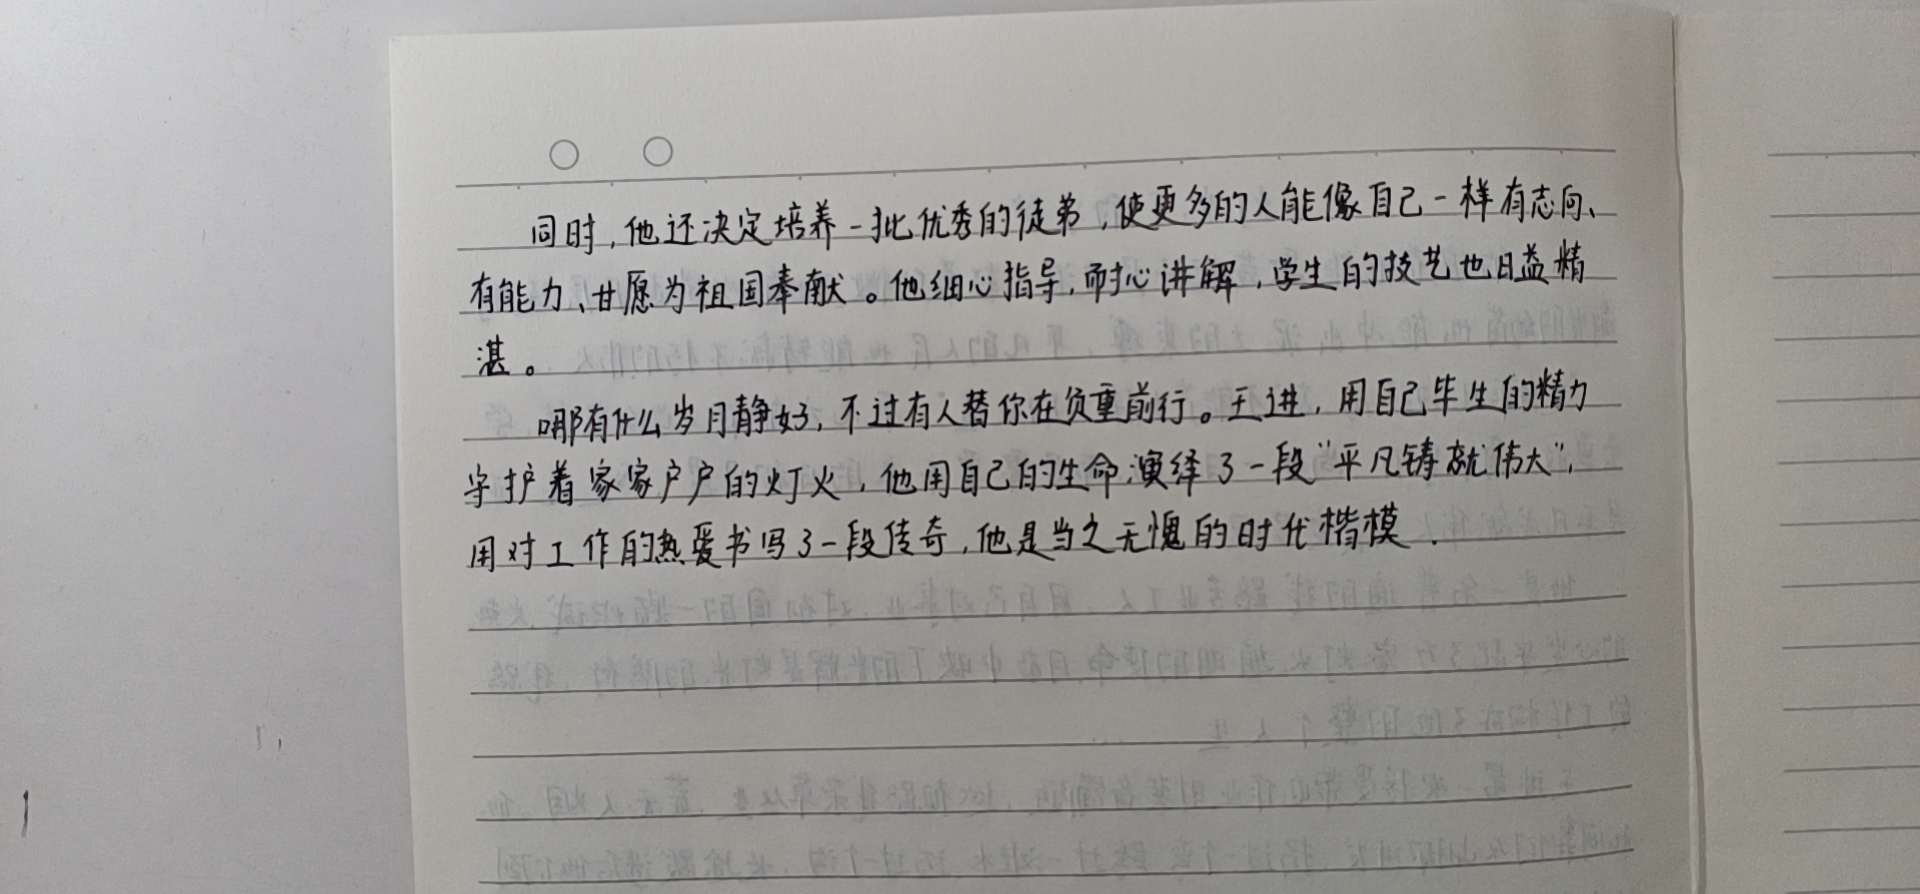 同时，他还决定培养一批优秀的徒弟，使更多的人能像自己一样有志向、
有能力、甘愿为祖国奉献。他细心指导，耐心讲解，学生的技艺也日益精
湛。
哪有什么岁月静好，不过有人替你在负重前行。王进，用自己毕生的精力
守护着家家户户的灯火，他用自己的生命演绎了一段“平凡铸就伟大”，
用对工作的热爱书写了一段传奇，他是当之无愧的时代楷模．